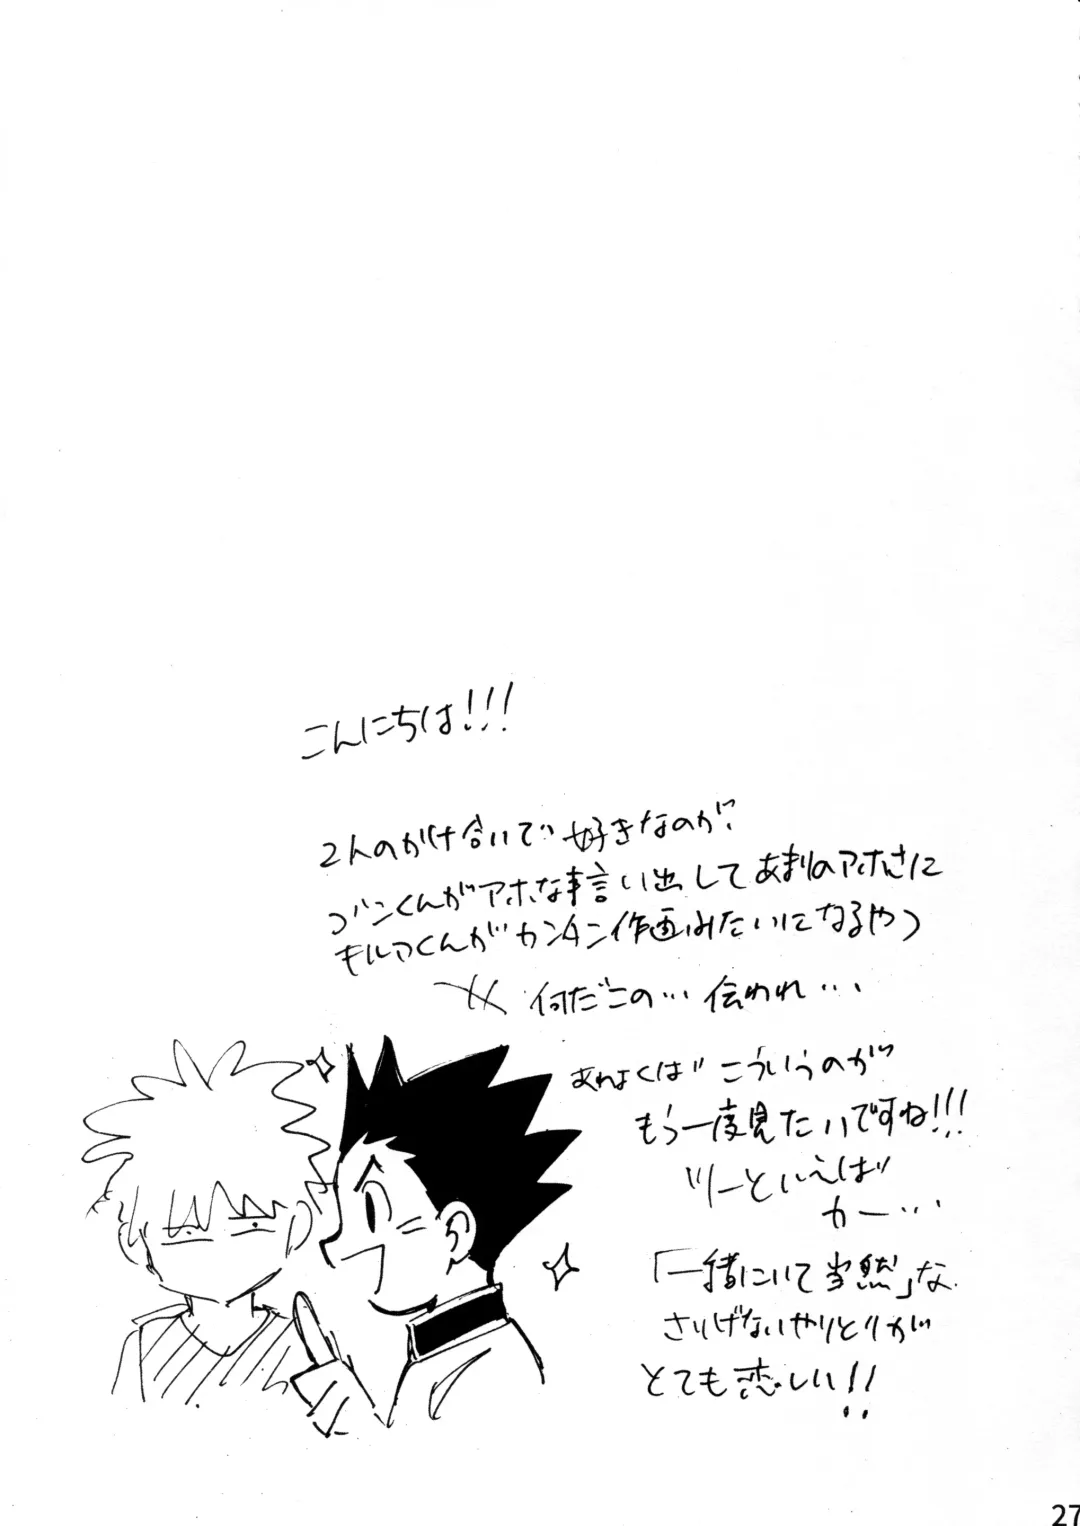 こんにちは!!!
2人のかけ合いで好きなのが、
ゴンくんがアホな事言い出してあまりのアホさに
キルアくんがカンタン作画みたいになるやつ
何だこの… 伝われ…
あわよくばこういうのが
もう一度見たいですね!!!
ツーといえば
カー…
「一緒にいて当然」な
さりげないやりとりが
とても恋しい!!
27